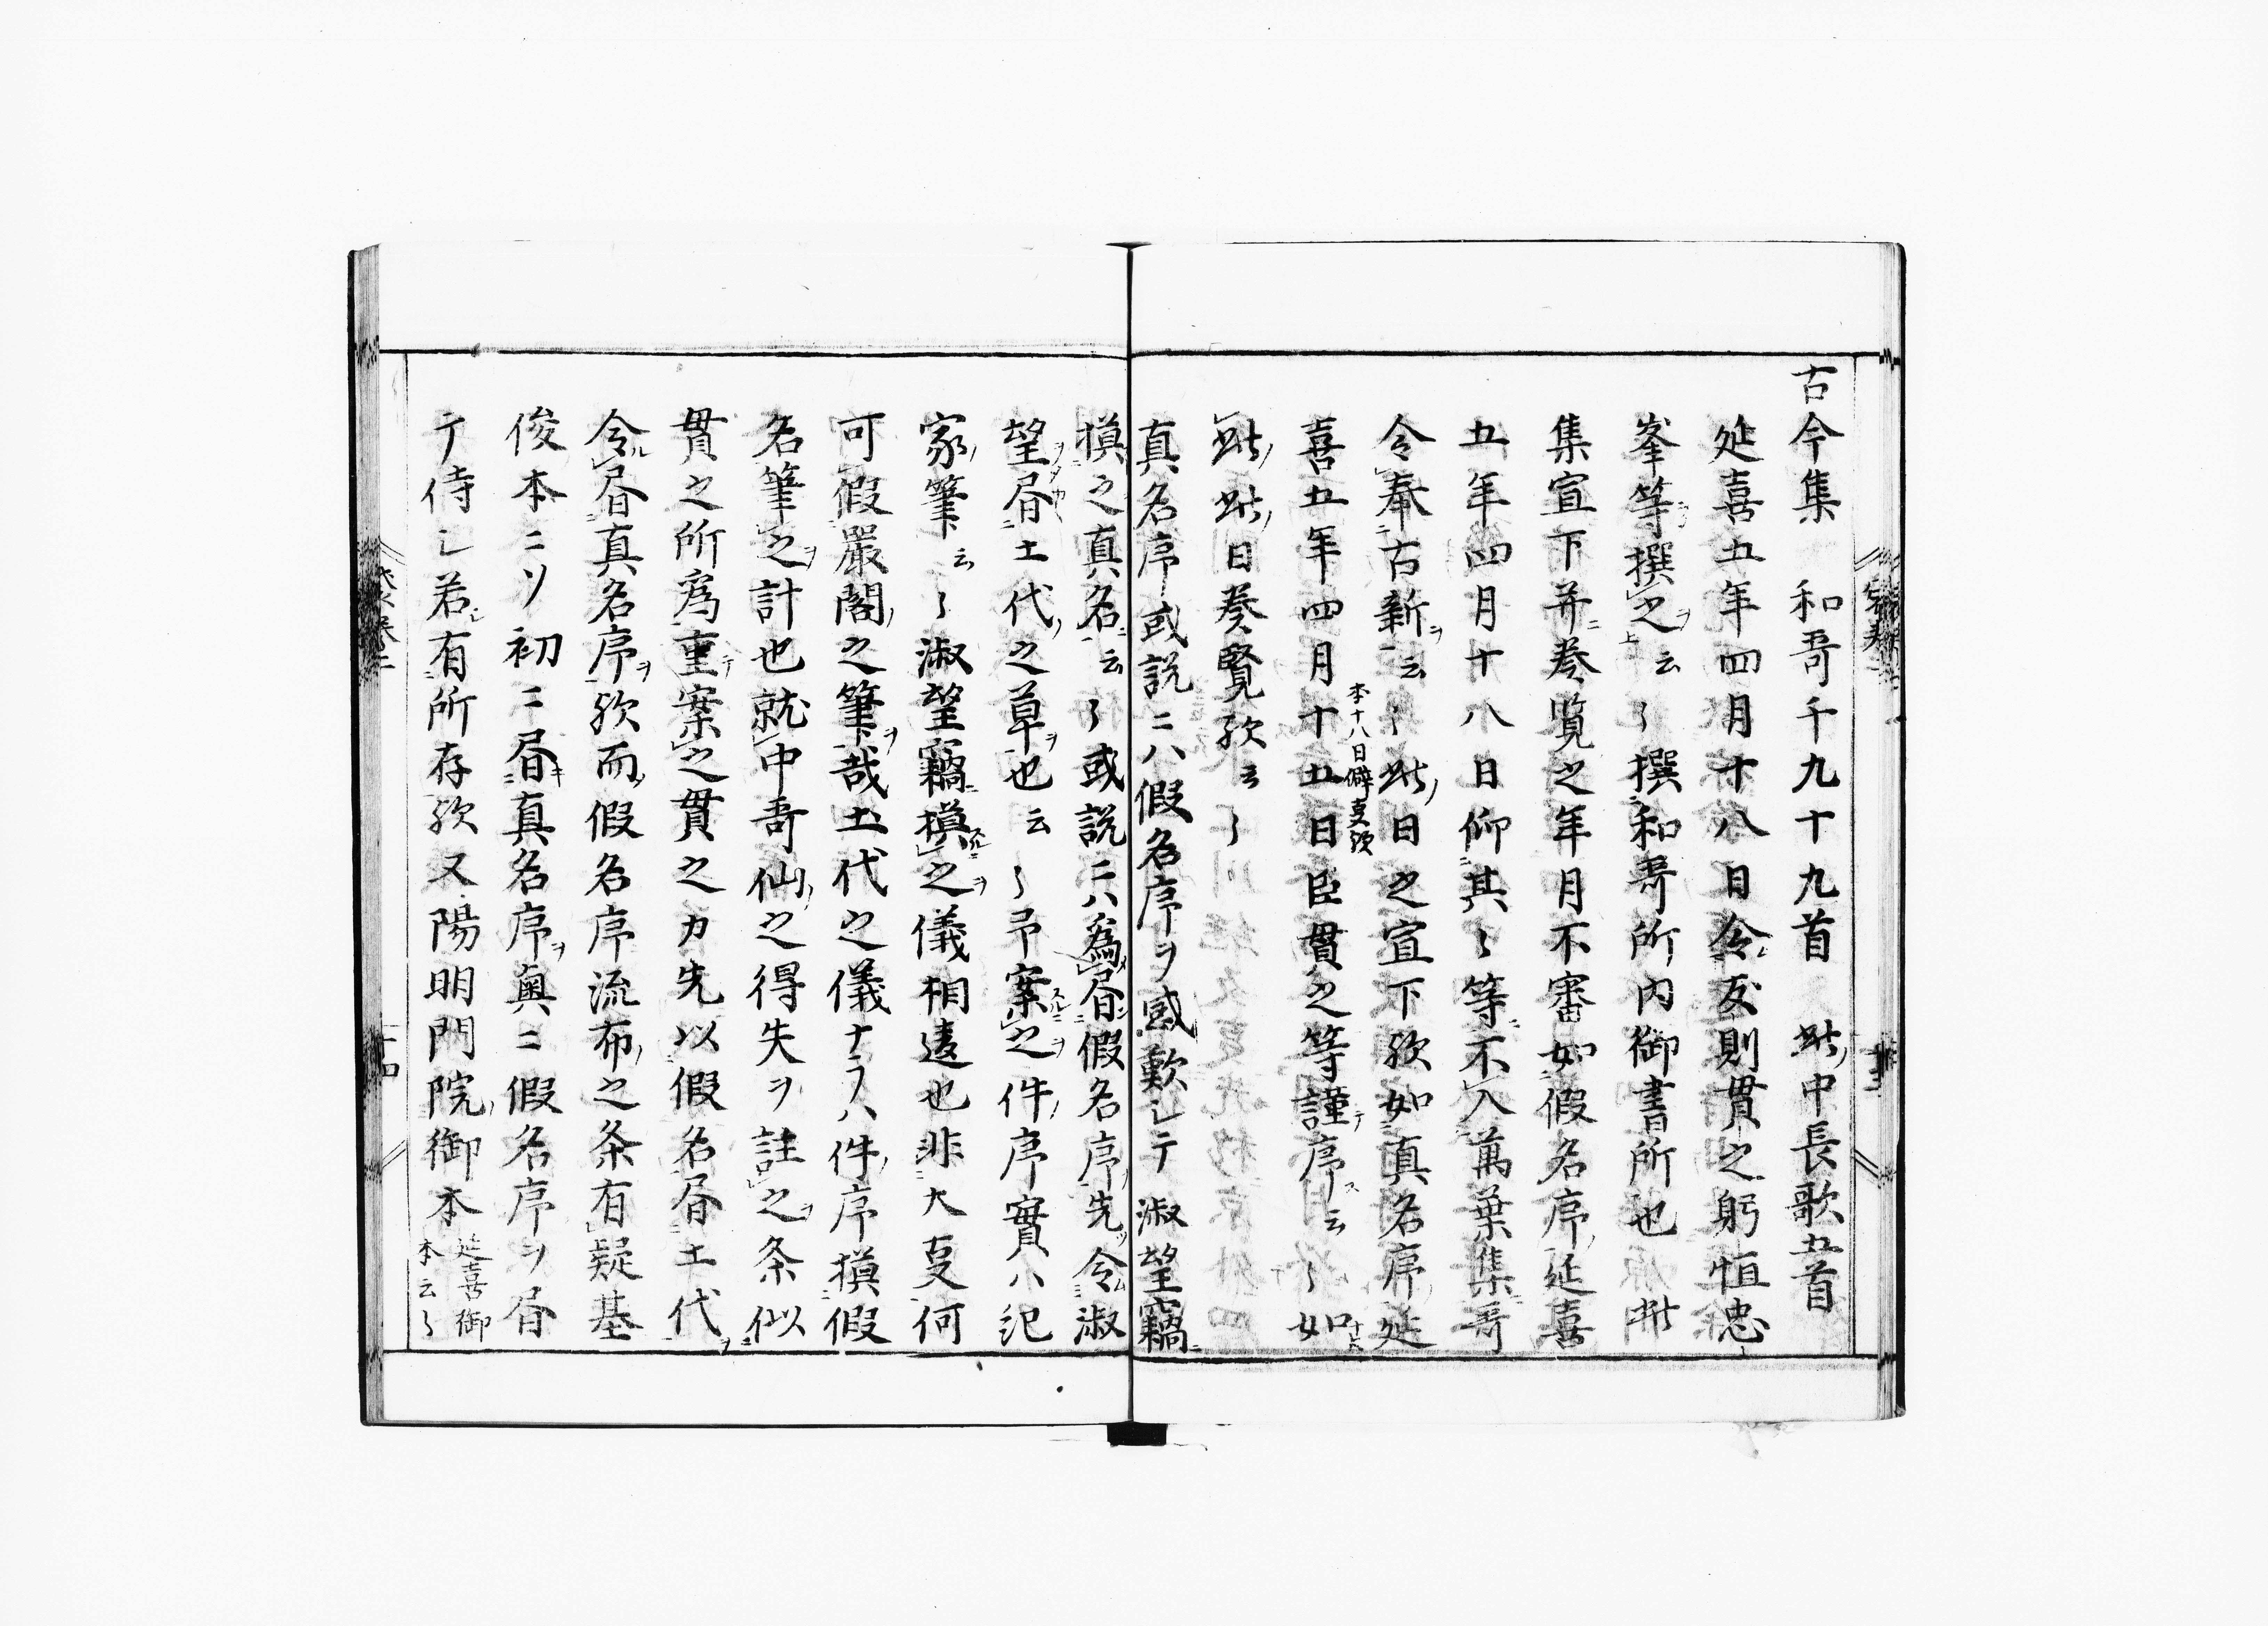 古今集　和哥千九十九首　此ノ中長歌五首
延喜五年四月十八日令友則貫之躬恒忠
峯等撰之云〻撰和哥所内御書所也此
集宣下并奏覧之年月不審如假名序ノ延喜
五年四月十八日仰其〻等不入萬葉集哥
令奉古新ヲ云〻此ノ日之宣下欤如真名序延
喜五年四月十五日臣貫之等謹序云〻如
本十八日僻事欤
此ノ此ノ日奏覧欤云〻
真名序或説ニハ假名序ヲ感歎シテ淑望竊
摸之真名云〻或説ニハ為昬假名序先令淑
望昬土代之草也云〻予案之件ノ序實ハ紀
家ノ筆云〻淑望竊摸之儀相違也非大事何
可假嚴閣之筆哉土代之儀ナラハ件ノ序摸假
名筆之計也就中哥仙ノ之得失ヲ註之条似
貫之所為重案之貫之カ先以假名昬土代
令昬真名序ヲ欤而假名序流布之条有疑基
俊本ニソ初ニ昬真名序ヲ奥ニ假名序ヲ昬
テ侍シ若有所存欤又陽明門院御本延喜御
本云〻